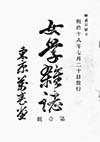 明治十八年七月二十日發行
女学雜誌
第壹號
東京 萬春堂